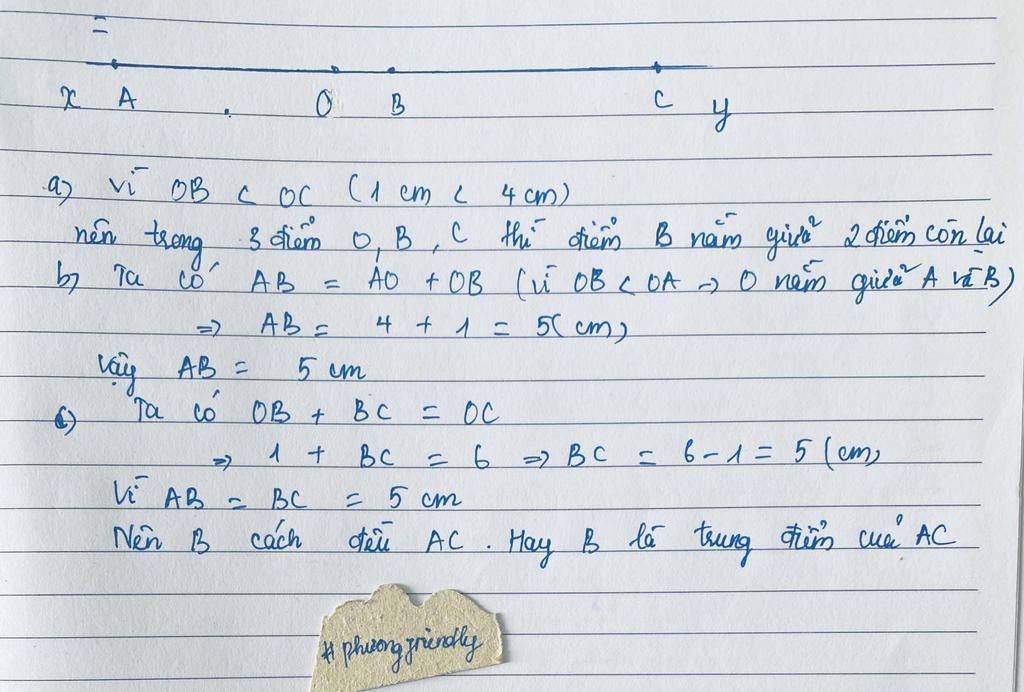 x A O B C y
a) Vì OB < OC (1 cm < 4 cm)
nên trong 3 điểm O, B, C thì điểm B nằm giữa 2 điểm còn lại
b) Ta có AB = AO + OB (vì OB < OA → O nằm giữa A và B)
=> AB = 4 + 1 = 5 (cm)
Vậy AB = 5 cm
c) Ta có OB + BC = OC
=> 1 + BC = 6 => BC = 6 - 1 = 5 (cm)
Vì AB = BC = 5 cm
Nên B cách đều AC. Hay B là trung điểm của AC
# phuongfriendly